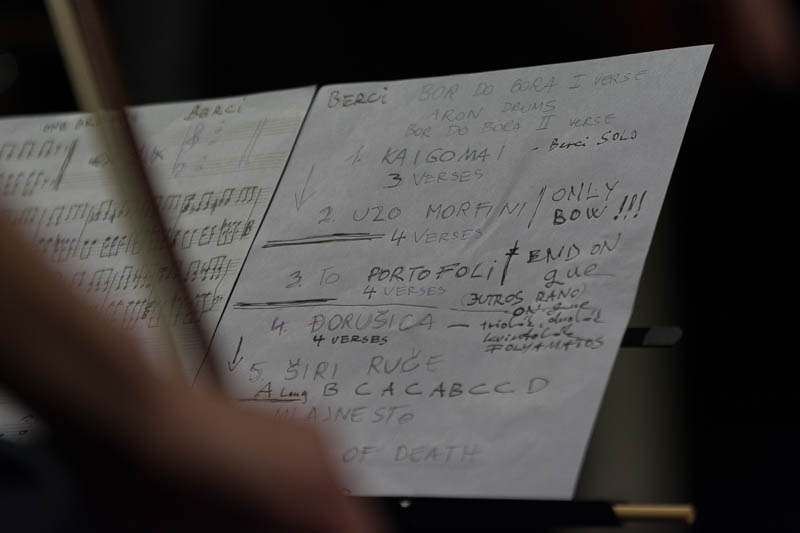 BERCI
BERCI BOR DO BORA I VERSE
ARON DRUMS
BOR DO BORA II VERSE
1. KAIGOMAI - Berci SOLO
3 VERSES
2. UZO MORFINI / ONLY BOW!!!
4 VERSES
3. TO PORTOFOLI END ON que
4 VERSES (JUTROS RANO)
4. ĐORUŠICA — ON que
4 VERSES
FOLYAMATOS
5. ŠIRI RUČE
A Long B C A C A B C C D
MLAJNESTO
OF DEATH